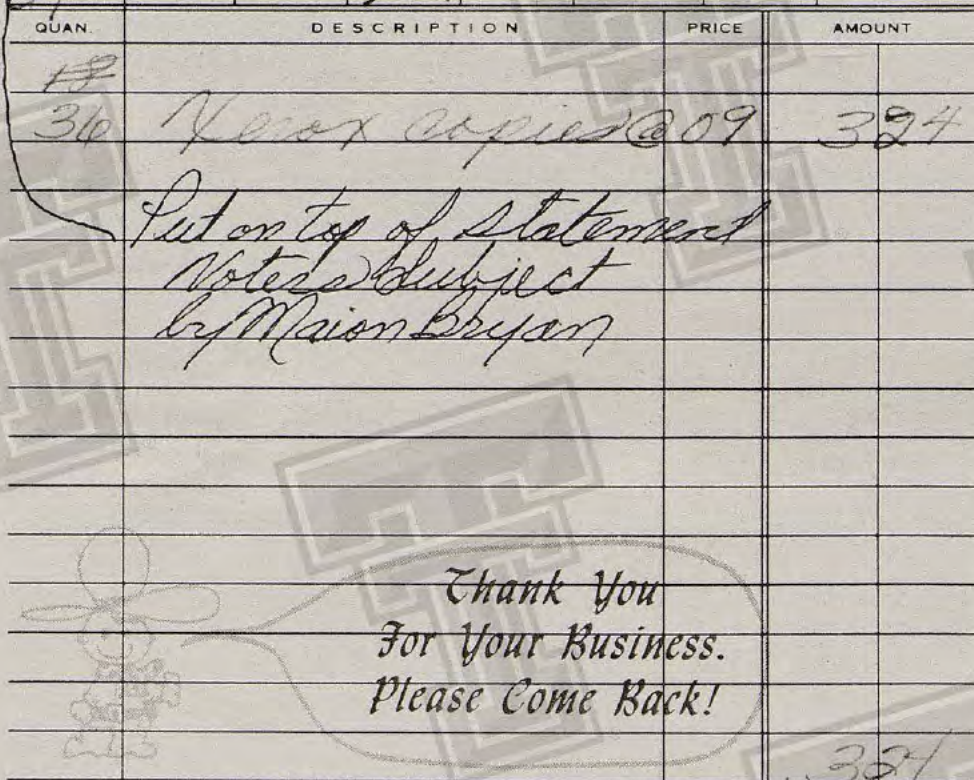 QUAN. DESCRIPTION PRICE AMOUNT
36 Xerox copies @ 09 324
Put on top of Statement
Voters Subject
by Maion Bryan
Thank You
For Your Business.
Please Come Back!
324